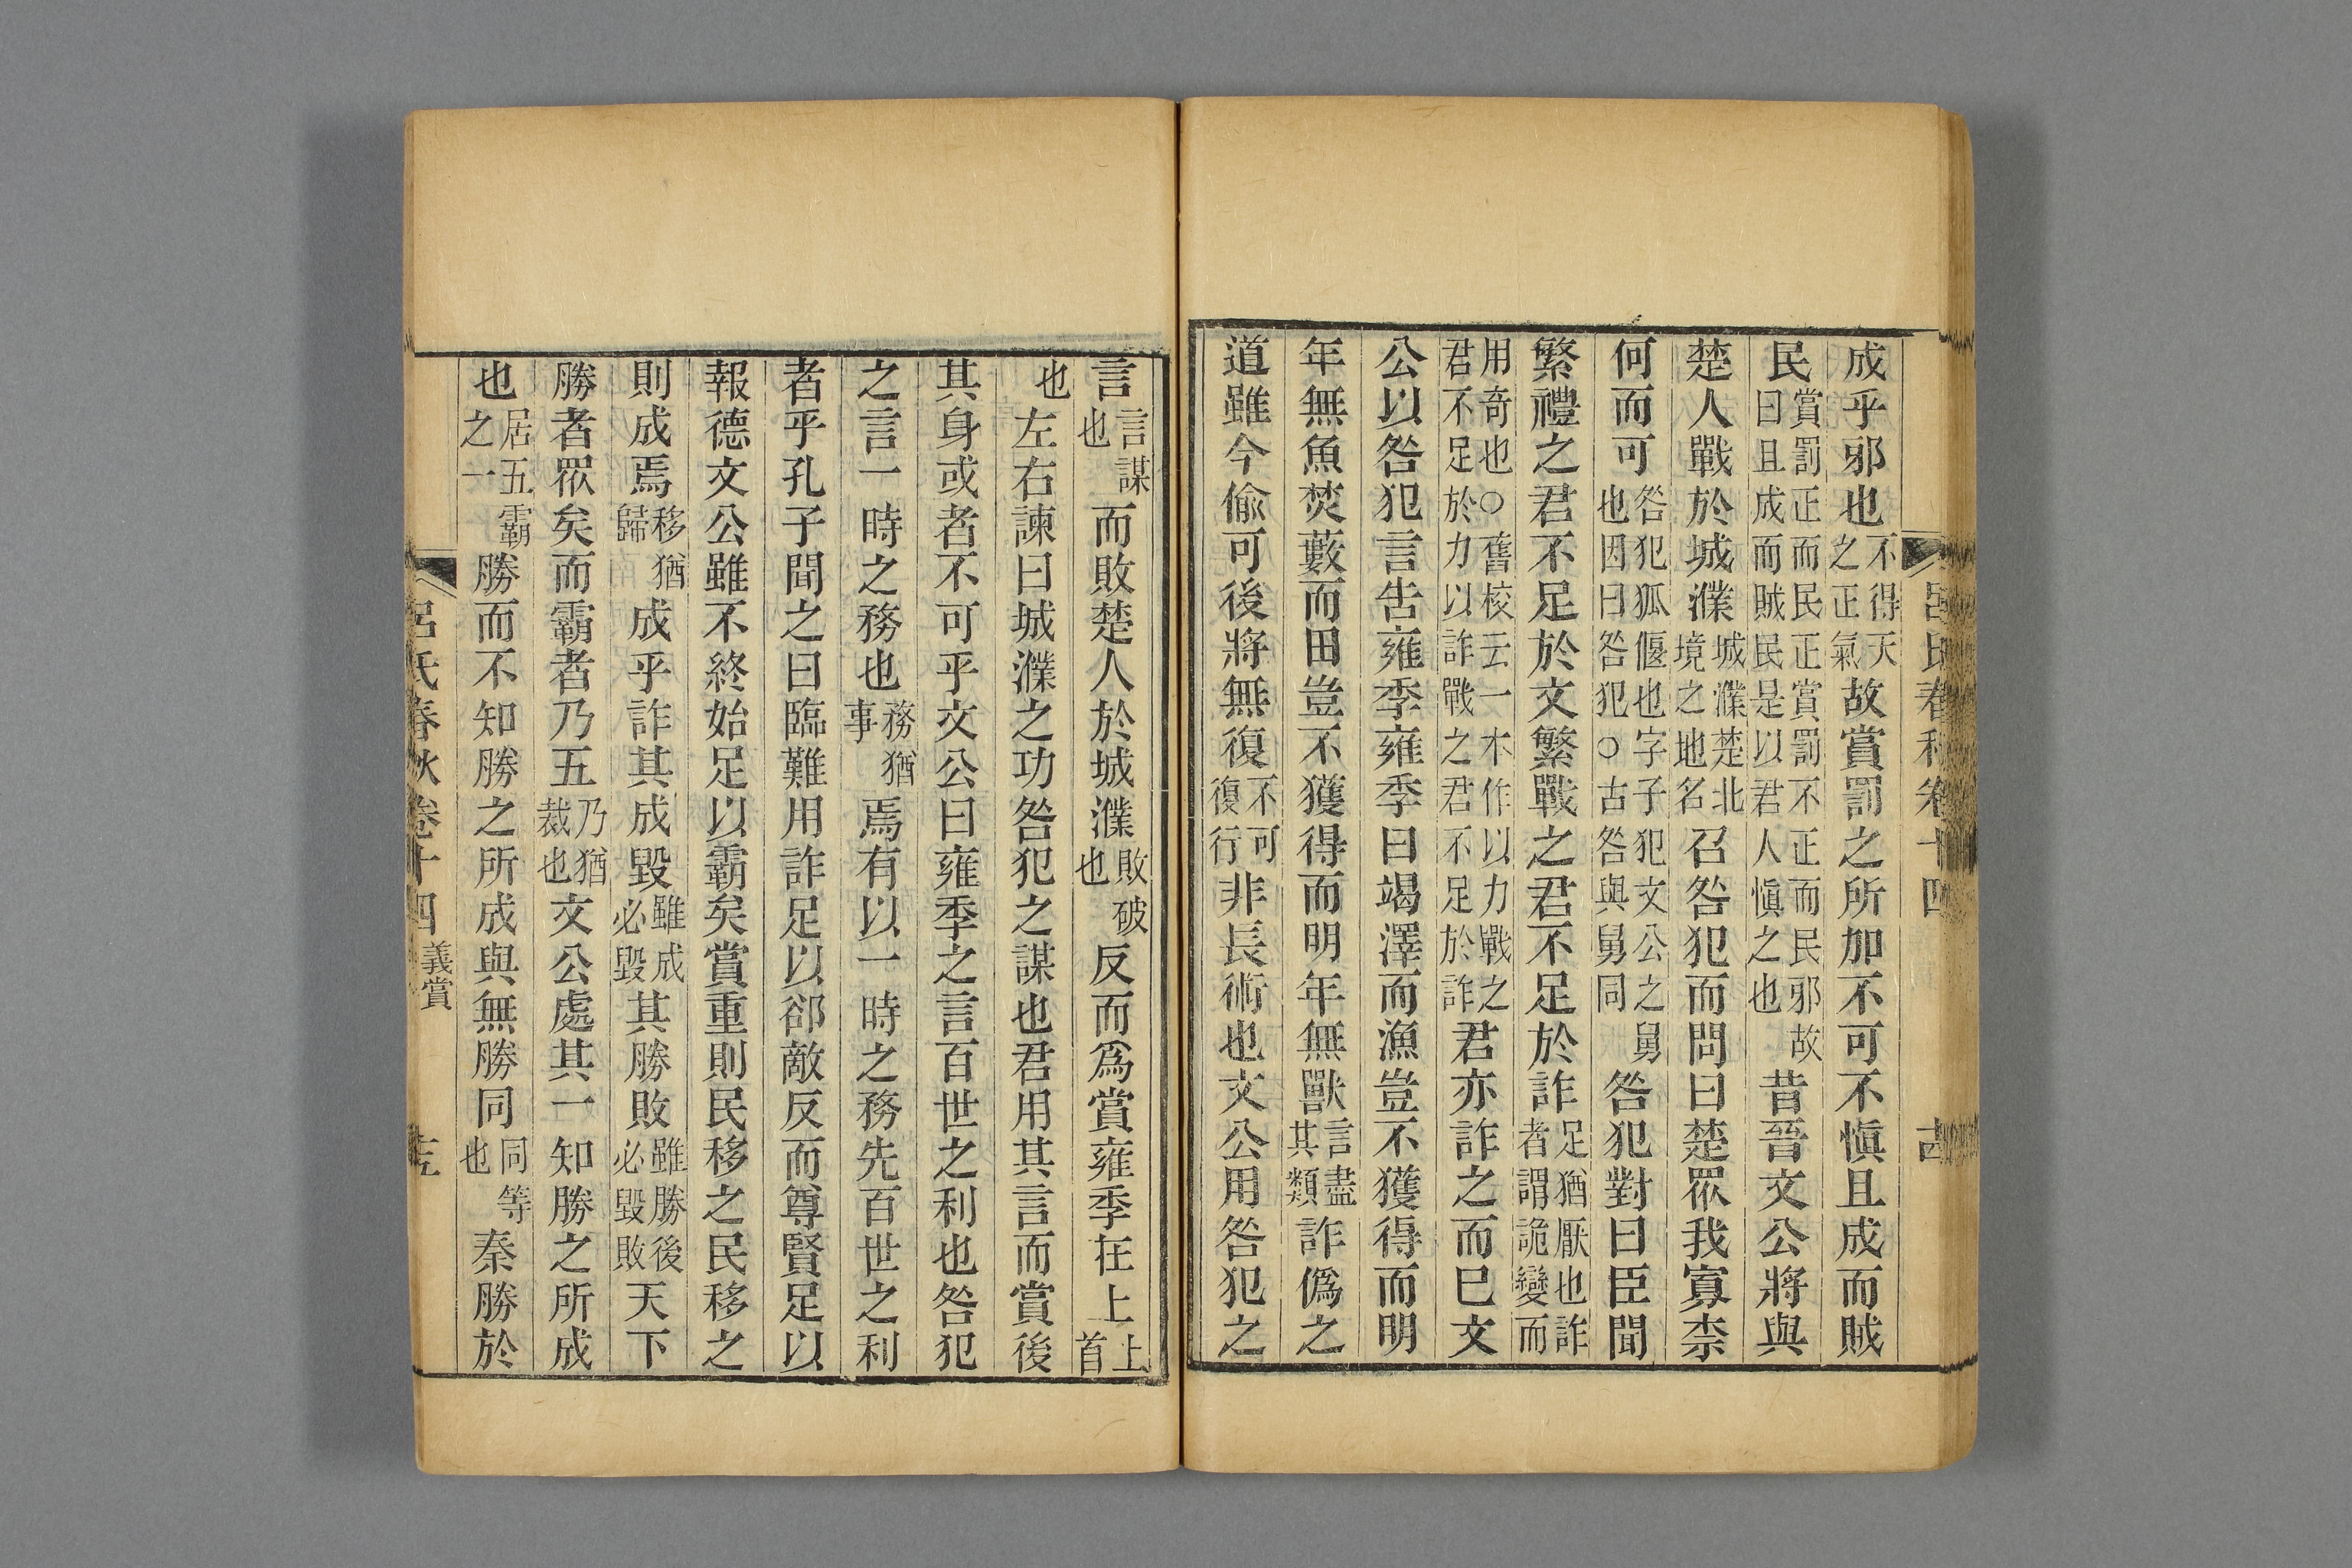 呂氏春秋卷十四
成乎邪也不得天之正氣故賞罰之所加不可不愼且成而賊
民賞罰正而民正賞罰不正而民邪故曰且成而賊民是以君人愼之也昔晉文公將與
楚人戰於城濮城濮楚北境之地名召咎犯而問曰楚眾我寡柰
何而可咎犯狐偃也字子犯文公之舅也因曰咎犯○古咎與舅同咎犯對曰臣聞
繁禮之君不足於文繁戰之君不足於詐足猶厭也詐者謂詭變而
用奇也○舊校云一本作以力戰之君不足於力以詐戰之君不足於詐君亦詐之而巳文
公以咎犯言告雍季雍季曰竭澤而漁豈不獲得而明
年無魚焚藪而田豈不獲得而明年無獸言盡其類詐僞之
道雖今偷可後將無復不可復行非長術也文公用咎犯之
言言謀也而敗楚人於城濮敗破也反而爲賞雍季在上上首
也左右諫曰城濮之功咎犯之謀也君用其言而賞後
其身或者不可乎文公曰雍季之言百世之利也咎犯
之言一時之務也務猶事焉有以一時之務先百世之利
者乎孔子聞之曰臨難用詐足以郤敵反而尊賢足以
報德文公雖不終始足以霸矣賞重則民移之民移之
則成焉移猶歸成乎詐其成毀雖成必毀其勝敗雖勝後必毀敗天下
勝者眾矣而霸者乃五乃猶裁也文公處其一知勝之所成
也居五霸之一勝而不知勝之所成與無勝同同等也秦勝於
呂氏春秋卷十四義賞